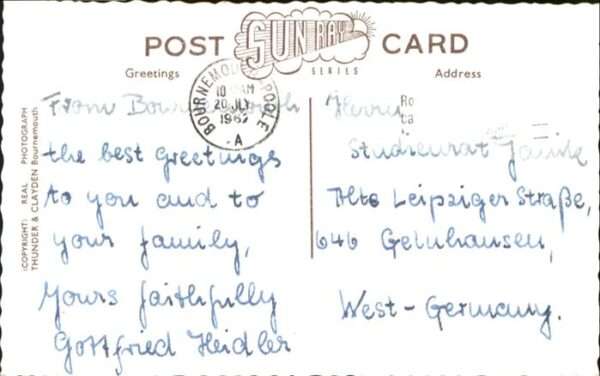 POST SUNRAY CARD
SERIES
Greetings
Address
(COPYRIGHT: REAL PHOTOGRAPH
THUNDER & CLAYDEN Bournemouth
BOURNEMOUTH POOLE
AM
20 JLY
196
A
From Bournemouth
the best greetings
to you and to
your family,
Yours faithfully
Gottfried Heidler
Herrn
Studienrat
Alte Leipziger Straße,
646 Gelnhausen,
West-Germany.